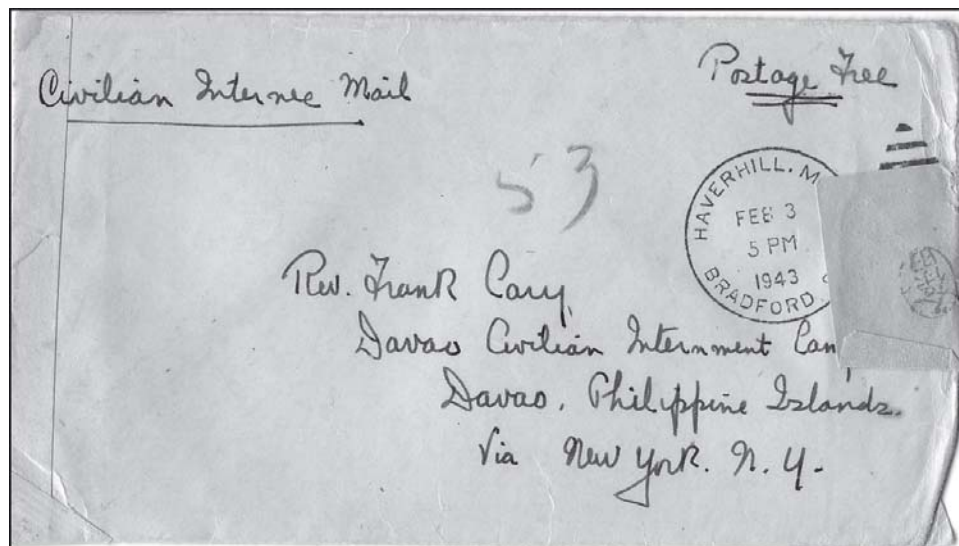 Civilian Internee Mail
Postage Free
53
HAVERHILL. M
FEB 3
5 PM
1943
BRADFORD
Rev. Frank Cary,
Davao Civilian Internment Cam
Davao, Philippine Islands.
Via New York. N. Y.